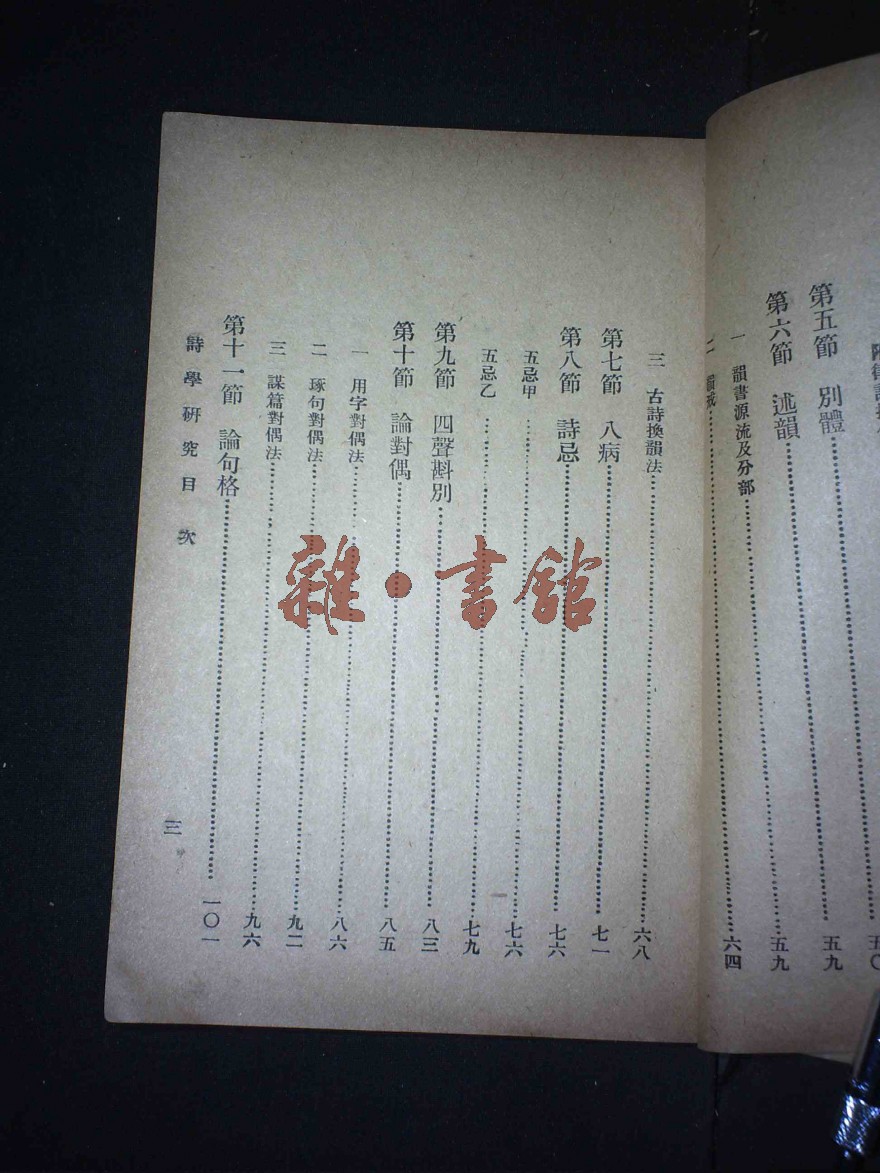 第五節　別體……五九
第六節　述韻……五九
一　韻書源流及分部……六四
三　古詩換韻法……六八
第七節　八病……七一
第八節　詩忌……七六
五忌甲……七六
五忌乙……七九
第九節　四聲斟別……八三
第十節　論對偶……八五
一　用字對偶法……八六
二　琢句對偶法……九二
三　謀篇對偶法……九六
第十一節　論句格……一〇一
詩學研究目次
三
雜·書館